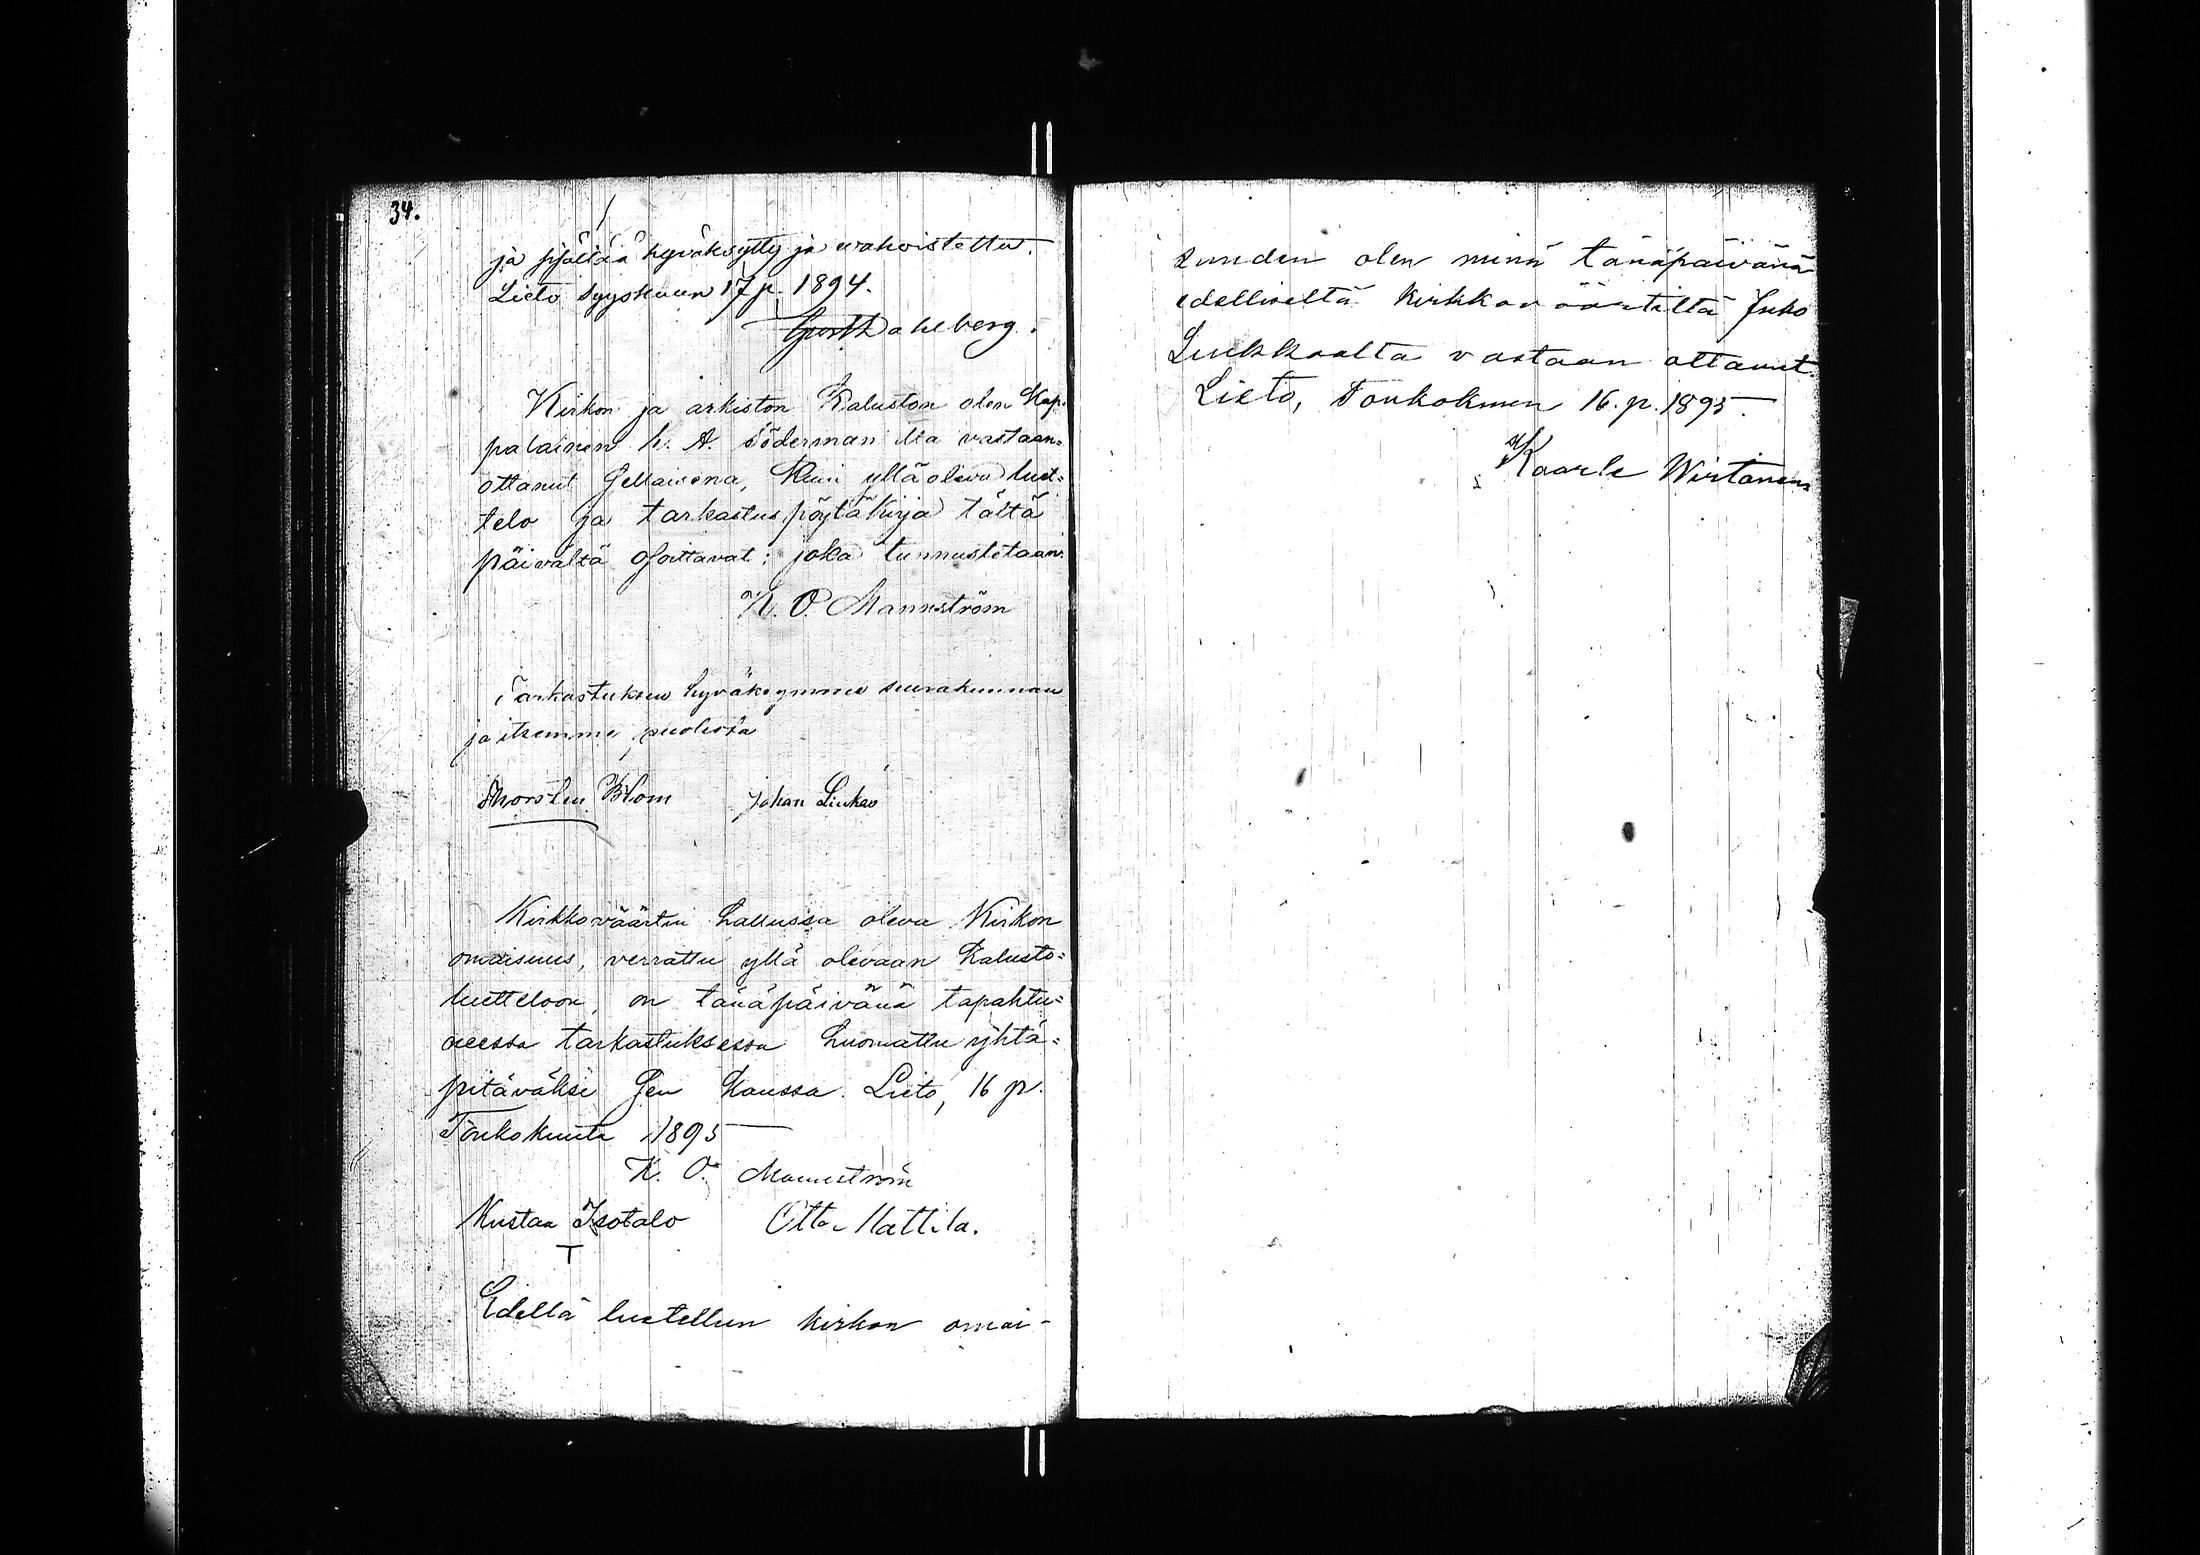 34.
ja hyväksytty ja wahvistettu.
Lieto syyskuun 17 p. 1894.
Dahlberg.
Kirkon ja arkiston Kaluston olen Kap-
palainen h. A. Södermanilla vastaan-
ottanut sellaisena, kuin ylläoleva luet-
telo ja tarkastus pöytäkirja tältä
päivältä osoittavat; joka tunnustetaan.
K. O. Mannström
Tarkastuksen hyväksymme seurakunnan
ja itsemme puolesta
Thorsten Blom Johan Liukas
Kirkkoväärtin hallussa oleva Kirkon
omaisuus, verrattu yllä olevaan Kalusto-
luetteloon, on tänäpäivänä tapahtu-
neessa tarkastuksessa huomattu yhtä-
pitäväksi sen kanssa. Lieto, 16 p.
Toukokuuta 1895
K. O. Mannström
Kustaa Isotalo Otto Mattila.
T
Edellä luetellun kirkon omai-
suuden olen minä tänäpäivänä
edelliseltä kirkkoväärtiltä Juho
vastaan ottanut.
Lieto, Toukokuun 16. p. 1895.
Kaarle Wirtanen